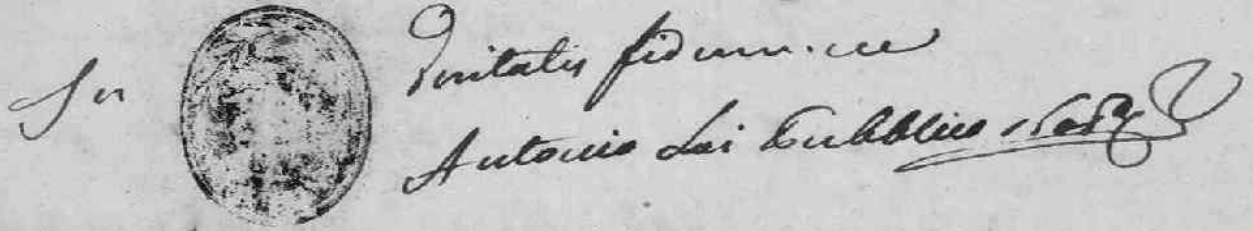 In Veritatis fidem
Antonio Lai Pubblico